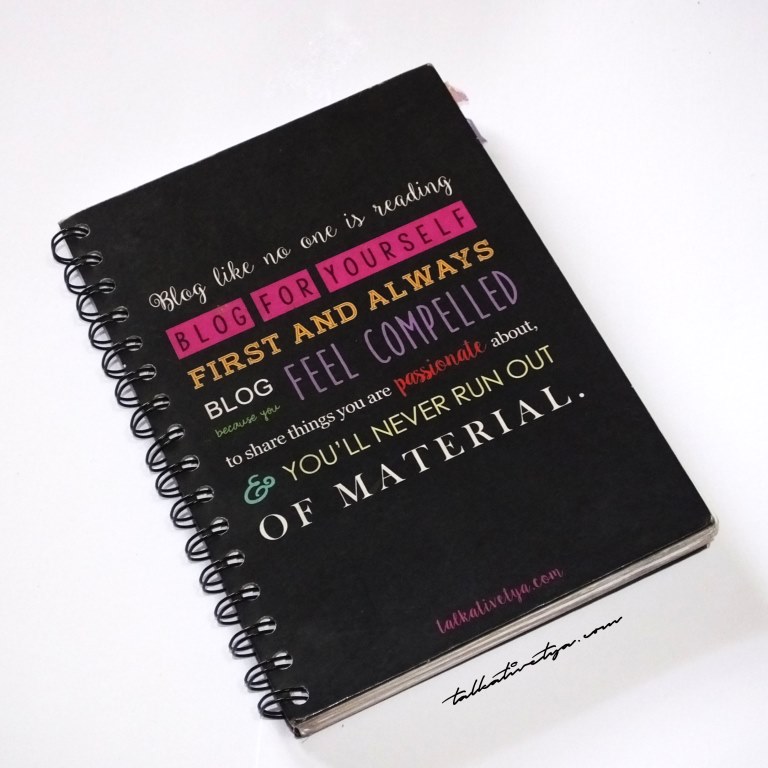 Blog like no one is reading
BLOG FOR YOURSELF
FIRST AND ALWAYS
BLOG because you FEEL COMPELLED
to share things you are passionate about,
& YOU'LL NEVER RUN OUT
OF MATERIAL.
talkativetya.com
talkativetya.com